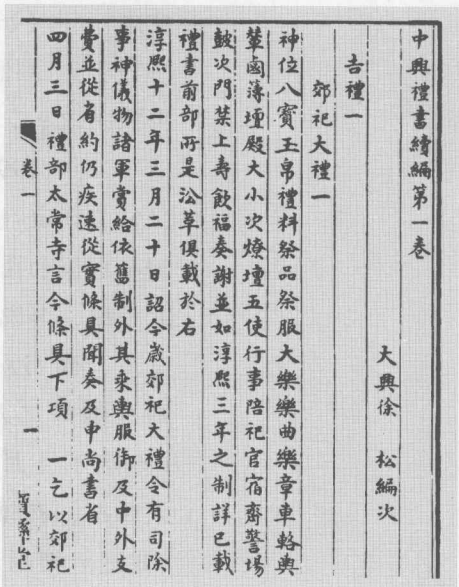 中興禮書續編第一卷
大興徐 松編次
吉禮一
郊祀大禮一
神位八寶玉帛禮料祭品祭服大樂樂曲樂章車輅輿
輦鹵簿壇殿大小次燎壇五使行事陪祀官宿齋警場
鼓次門禁上壽飲福奏謝並如淳熙三年之制詳已載
禮書前部所是沿革俱載於右
淳熙十二年三月二十日詔今歲郊祀大禮令有司除
事神儀物諸軍賞給依舊制外其乘輿服御及中外支
費並從省約仍疾速從實條具聞奏及申尚書省
四月三日禮部太常寺言今條具下項 一乞以郊祀
卷一
一